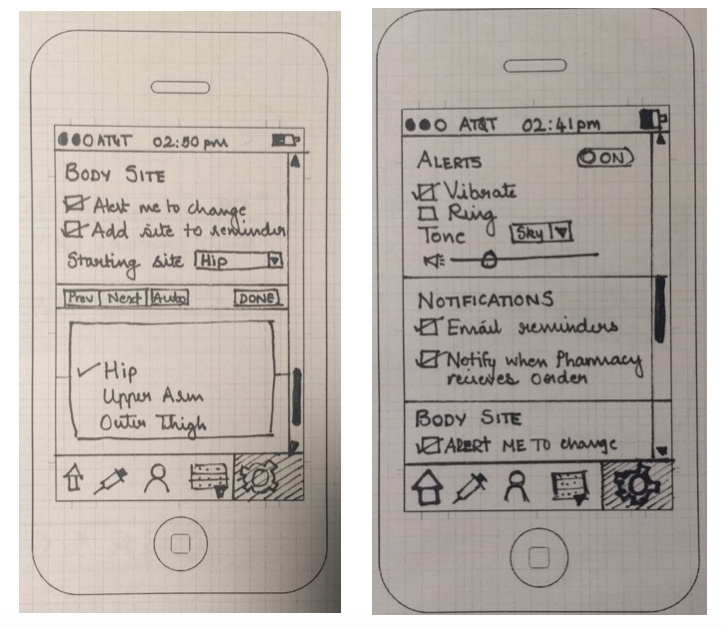 AT&T 02:50 pm
BODY SITE
Alert me to change
Add site to reminder
Starting site Hip
Prev Next Auto DONE
Hip
Upper Arm
Outer Thigh
AT&T 02:41pm
ALERTS ON
Vibrate
Ring
Tone Sky
NOTIFICATIONS
Email reminders
Notify when Pharmacy
recieves order
BODY SITE
ALERT ME TO change